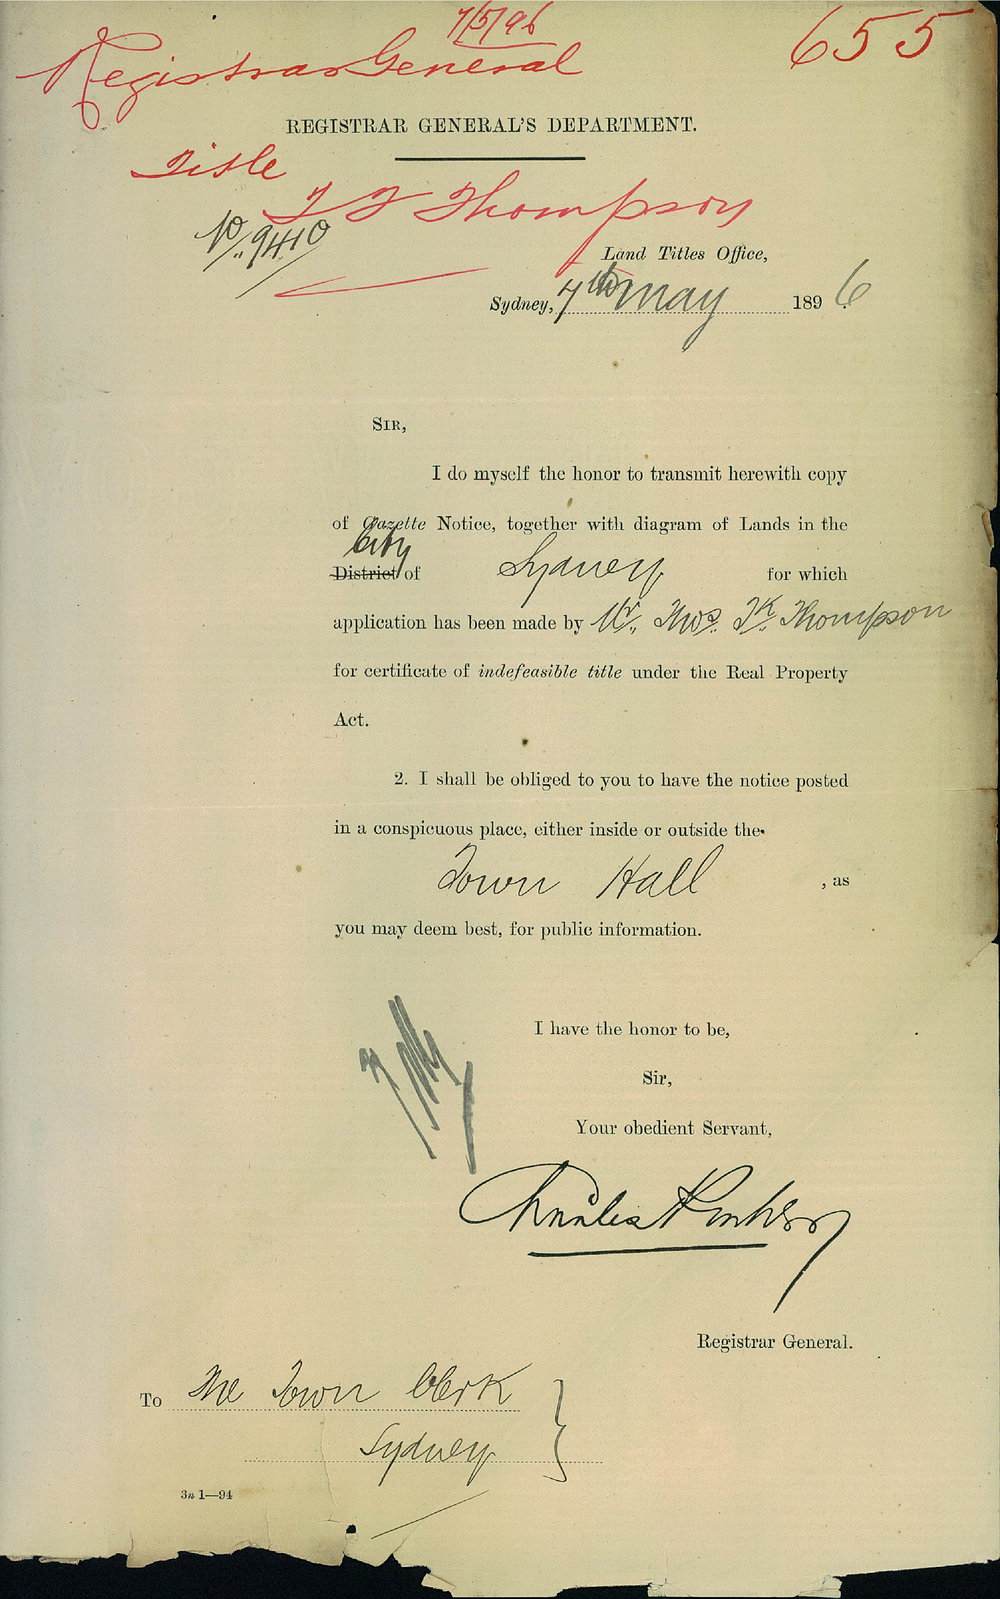 7/5/96
655
Registrar General
REGISTRAR GENERAL'S DEPARTMENT.
Title
T F Thompson
No. 9410
Land Titles Office,
Sydney, 7th May 1896.
SIR,
I do myself the honor to transmit herewith copy
of Gazette Notice, together with diagram of Lands in the
City
District of Sydney for which
application has been made by Mr. Thos. Fk. Thompson
for certificate of indefeasible title under the Real Property
Act.
2. I shall be obliged to you to have the notice posted
in a conspicuous place, either inside or outside the
Town Hall , as
you may deem best, for public information.
I have the honor to be,
Sir,
Your obedient Servant,
Charles
Registrar General.
To The Town Clerk
Sydney
3n 1—94